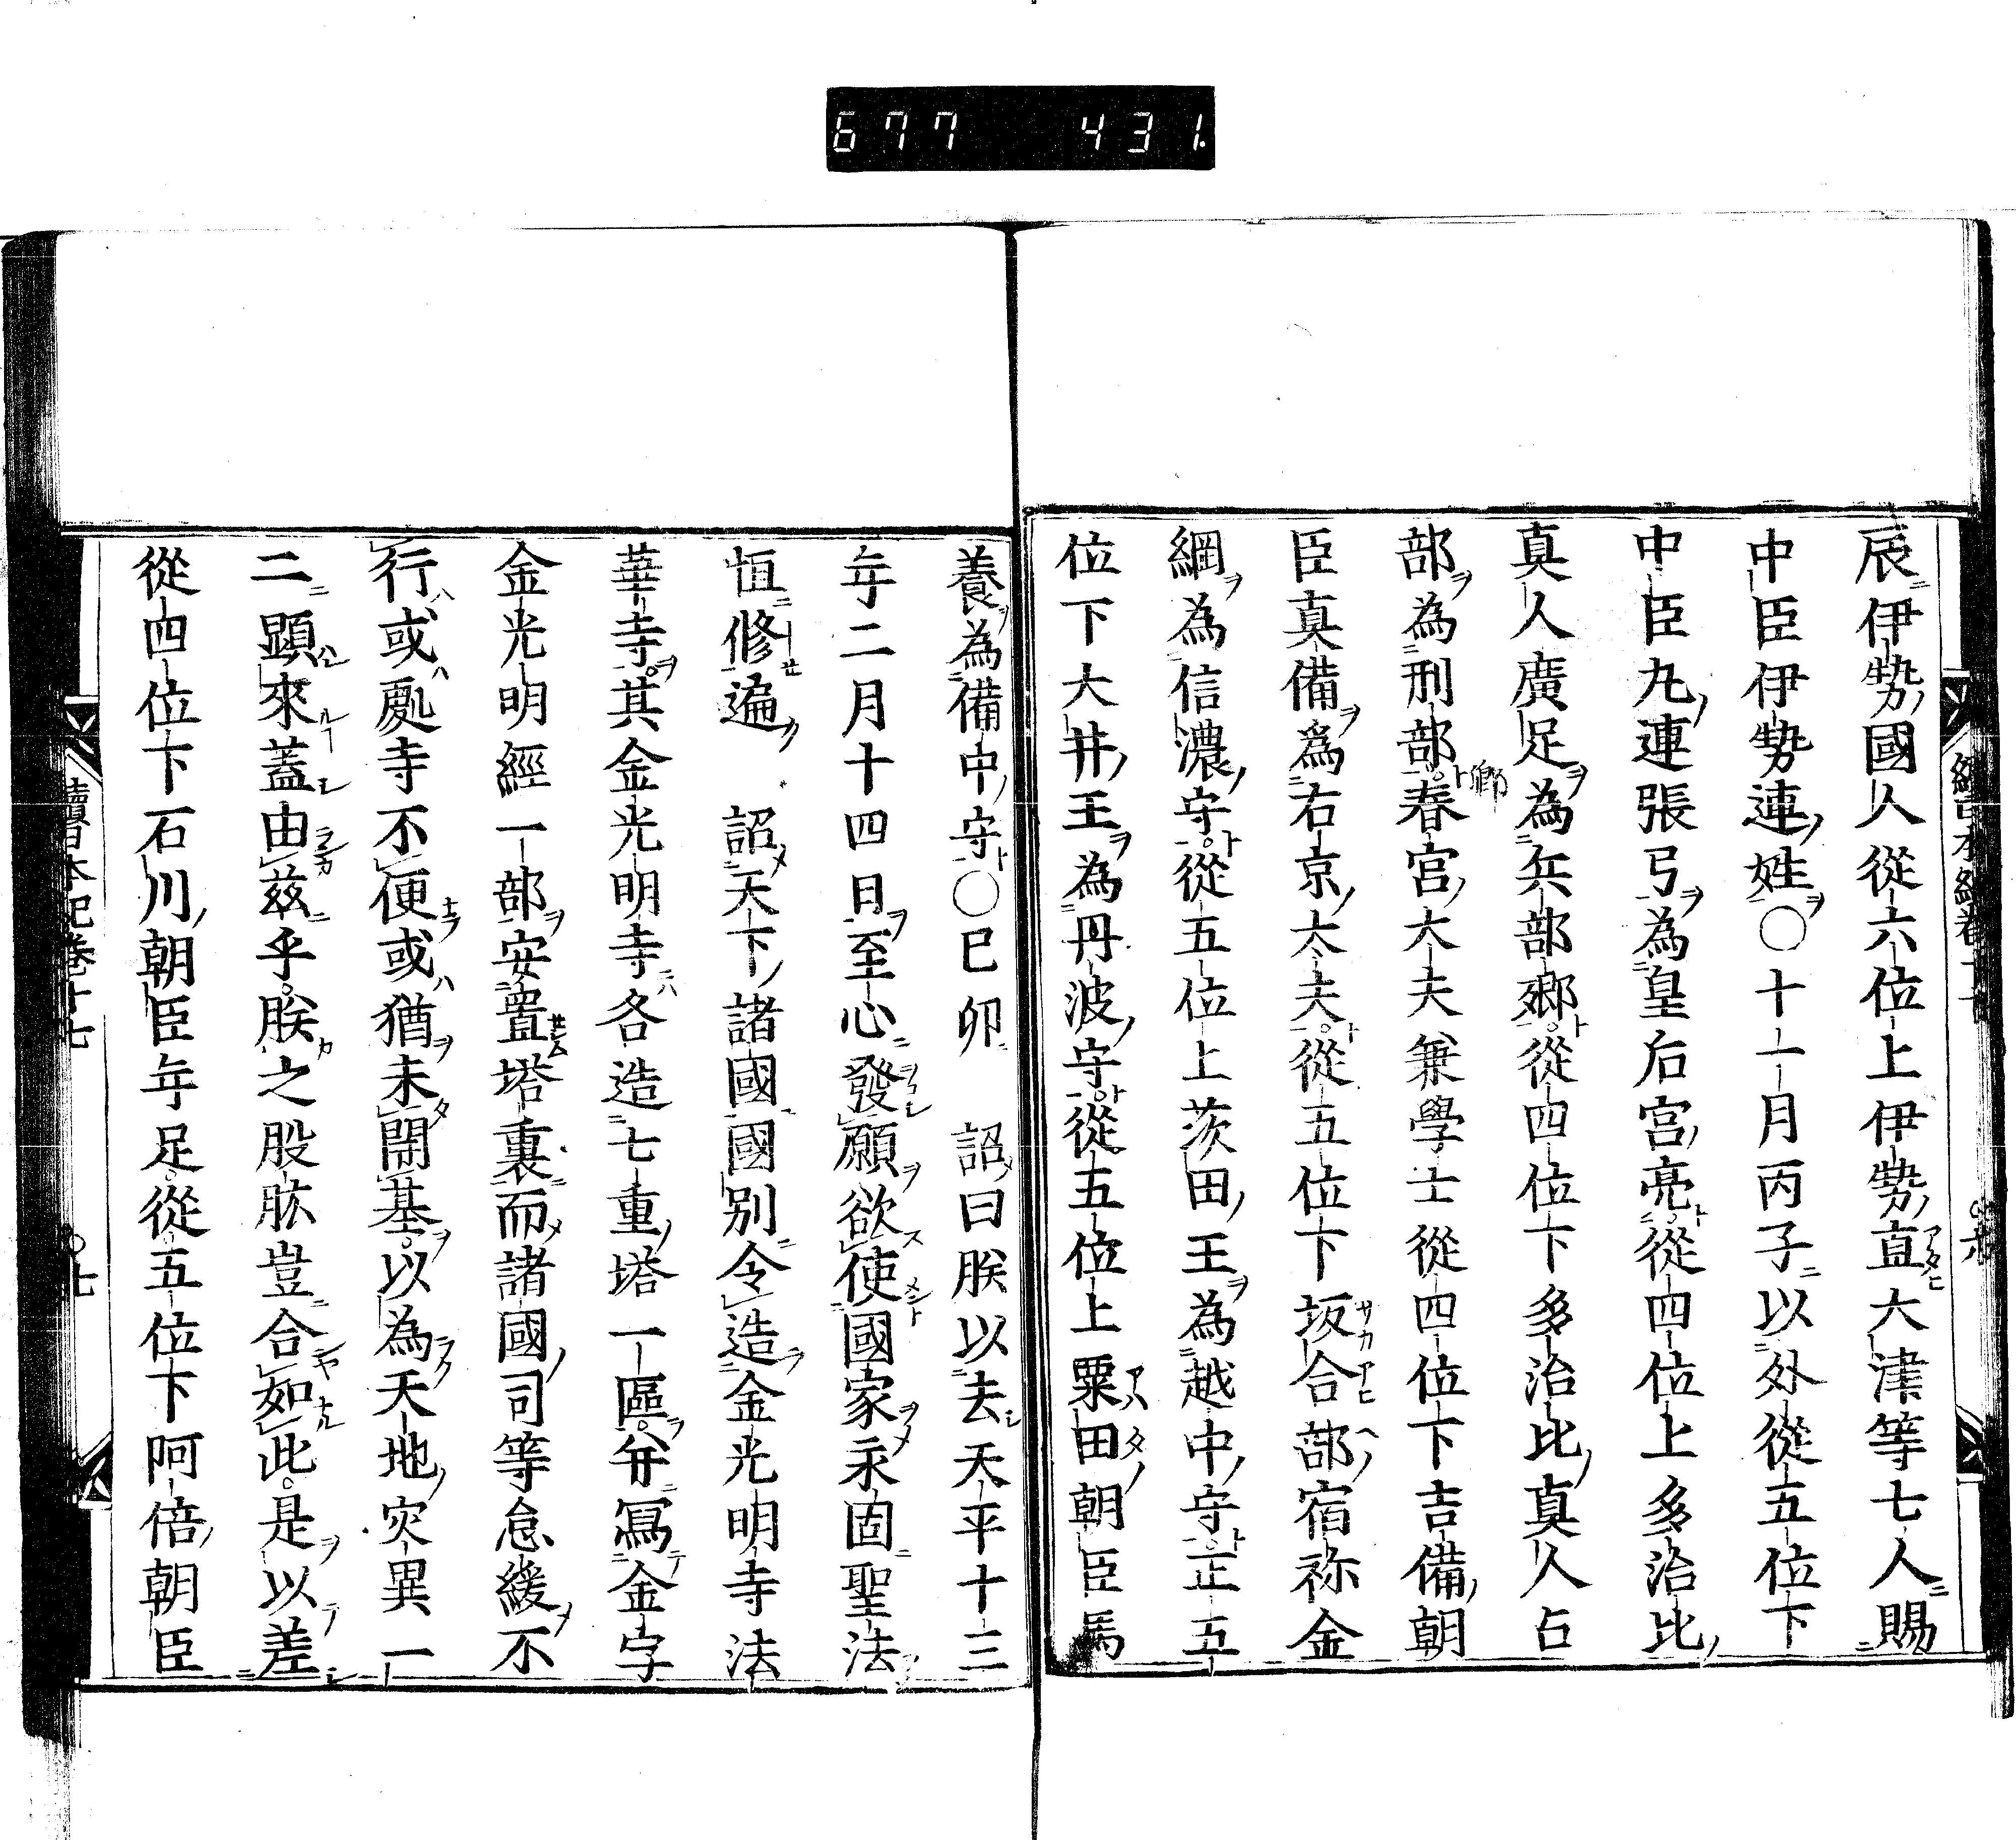 677 431.
辰伊勢國人從六位上伊勢直大津等七人賜
中臣伊勢連姓○十一月丙子以外從五位下
中臣丸連張弓為皇后宮亮從四位上多治比
真人廣足為兵部卿從四位下多治比真人占
部為刑部卿春宮大夫兼學士從四位下吉備朝
臣真備為右京大夫從五位下坂合部宿祢金
綱為信濃守從五位上茨田王為越中守正五
位下大井王為丹波守從五位上粟田朝臣馬
養為備中守○己卯 詔曰朕以去天平十三
年二月十四日至心發願欲使國家永固聖法
恒修遍 詔天下諸國國別令造金光明寺法
華寺其金光明寺各造七重塔一區并寫金字
金光明經一部安置塔裏而諸國司等怠緩不
行或處寺不便或猶未開基以為天地灾異一
二顯來蓋由茲乎朕之股肱豈合如此是以差
從四位下石川朝臣年足從五位下阿倍朝臣
續日本紀卷十七
○七